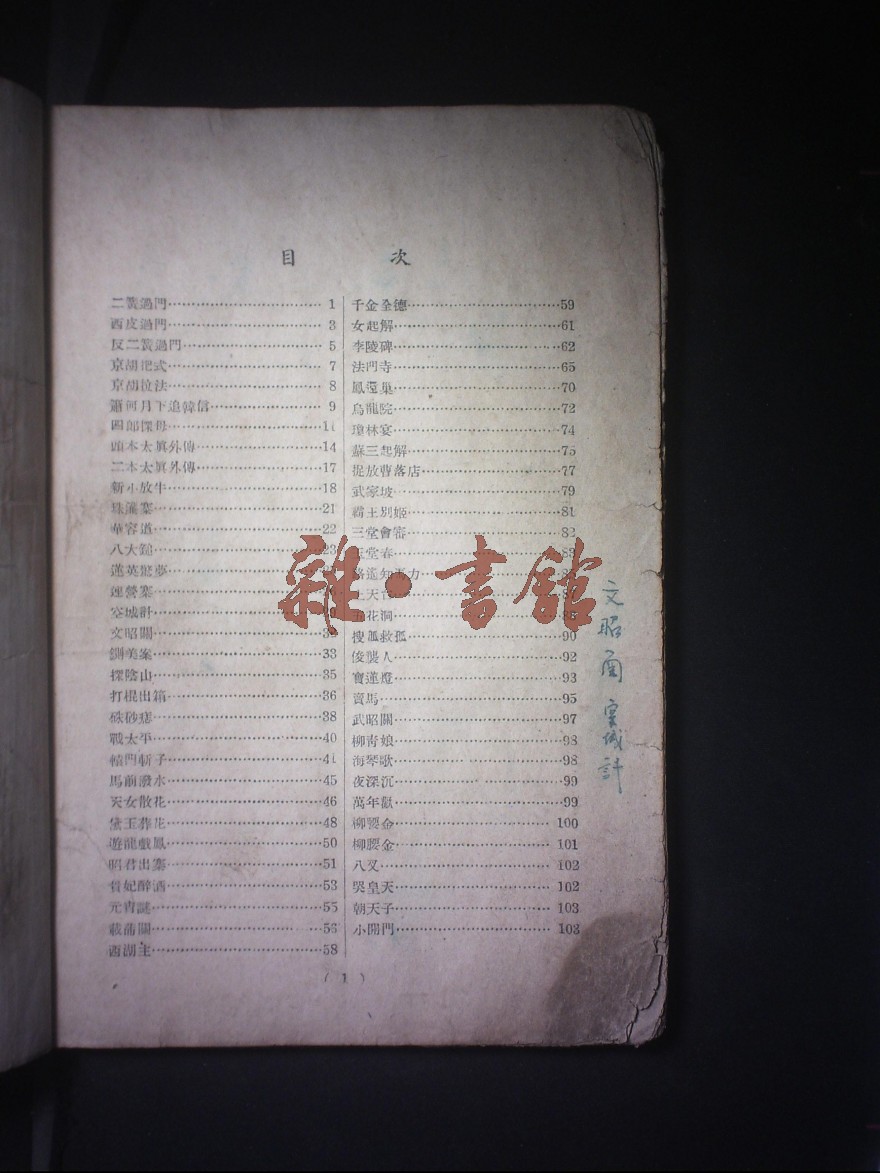 目 次
二簧過門 1
西皮過門 3
反二簧過門 5
京胡把式 7
京胡拉法 8
蕭何月下追韓信 9
四郎探母 11
頭本太眞外傳 14
二本太眞外傳 17
新小放牛 18
珠簾寨 21
華容道 22
八大鎚 23
蓮英驚夢
連營寨
空城計
文昭關
鍘美案 33
探陰山 35
打棍出箱 36
硃砂痣 38
戰太平 40
轅門斬子 41
馬前潑水 45
天女散花 46
黛玉葬花 48
遊龍戲鳳 50
昭君出塞 51
貴妃醉酒 53
元宵謎 55
56
西湖主 58
千金全德 59
女起解 61
李陵碑 62
法門寺 65
鳳還巢 70
烏龍院 72
瓊林宴 74
蘇三起解 75
捉放曹落店 77
武家坡 79
霸王別姬 81
三堂會審 82
堂春
遙知馬力
天官
花洞
搜孤救孤 90
俊襲人 92
寶蓮燈 93
賣馬 95
武昭關 97
柳青娘 98
海琴歌 98
夜深沉 99
萬年歡 99
柳腰金 100
柳腰金 101
八叉 102
哭皇天 102
朝天子 103
小開門 103
(1)
雜·書館
文昭関 空城計